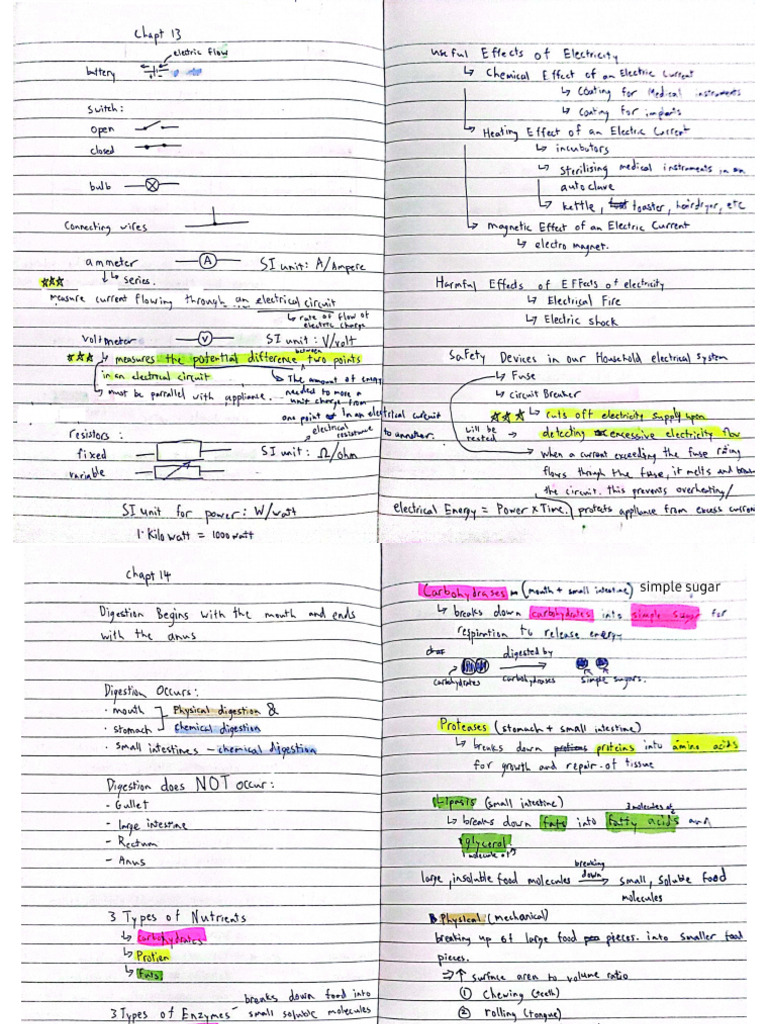 Chapt 13
electric flow
battery
Switch:
open
closed
bulb
Connecting wires
ammeter A SI unit: A/Ampere
↳ series.
measure current flowing through an electrical circuit
↳ rate of flow of
electric charge
Voltmeter V SI unit: V/volt
↳ measures the potential difference between two points
in an electrical circuit
↳ The amount of energy
needed to move a
unit charge from
one point to another. In an electrical circuit
↳ must be parrallel with appliance.
resistors:
electrical
resistance
fixed SI unit: Ω/ohm
variable
SI unit for power: W/watt
1 Kilo watt = 1000 watt
Useful Effects of Electricity
↳ Chemical Effect of an Electric Current
↳ Coating for Medical instruments
↳ coating for implants
↳ Heating Effect of an Electric Current
↳ incubators
↳ sterilising medical instruments in an
autoclave
↳ kettle, toaster, hairdryer, etc
↳ magnetic Effect of an Electric Current
↳ electro magnet.
Harmful Effects of Effects of electricity
↳ Electrical Fire
↳ Electric shock
Safety Devices in our Household electrical system
↳ Fuse
↳ circuit Breaker
↳ cuts off electricity supply upon
detecting excessive electricity flow
will be
tested
↳ when a current exceeding the fuse rating
flows through the fuse, it melts and
the circuit. this prevents overheating/
protects appliance from excess current
electrical Energy = Power x Time.
Chapt 14
Digestion Begins with the mouth and ends
with the anus
Digestion Occurs:
• mouth
Physical digestion &
• stomach
Chemical digestion
• Small intestines - chemical digestion
Digestion does NOT occur:
- Gullet
- large intestine
- Rectum
- Anus
3 Types of Nutrients
↳ Carbohydrates
↳ Protien
↳ Fats
3 Types of Enzymes - breaks down food into
small soluble molecules
Carbohydrases - (mouth + small intestine) simple sugar
↳ breaks down carbohydrates into simple sugar for
respiration to release energy
digested by
carbohydrates carbohydrases simple sugars.
Proteases (stomach + small intestine)
↳ breaks down proteins into amino acids
for growth and repair of tissue
Lipasis (small intestine)
3 molecules of
↳ breaks down fats into fatty acids and
glycerol
1 molecule of
large, insoluble food molecules breaking down → small, soluble food
molecules
Physical (mechanical)
breaking up of large food pieces. into smaller food
pieces.
⇒ ↑ surface area to volume ratio
① chewing (teeth)
② rolling (tongue)